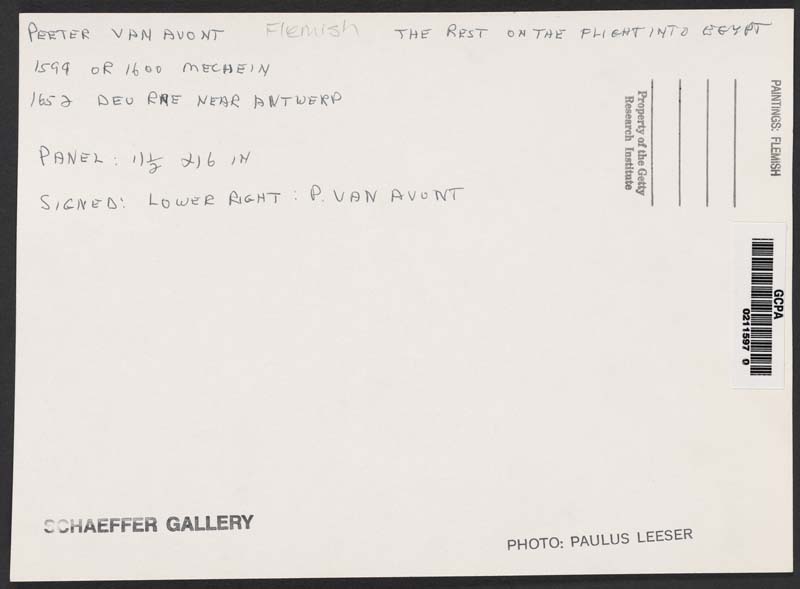 PEETER VAN AVONT Flemish THE REST ON THE FLIGHT INTO EGYPT
1599 OR 1600 MECHEIN
1652 DEURNE NEAR ANTWERP
PANEL: 11 1/2 x 16 IN
SIGNED: LOWER RIGHT: P. VAN AVONT
PAINTINGS: FLEMISH
Property of the Getty
Research Institute
GCPA
0211597 0
SCHAEFFER GALLERY
PHOTO: PAULUS LEESER